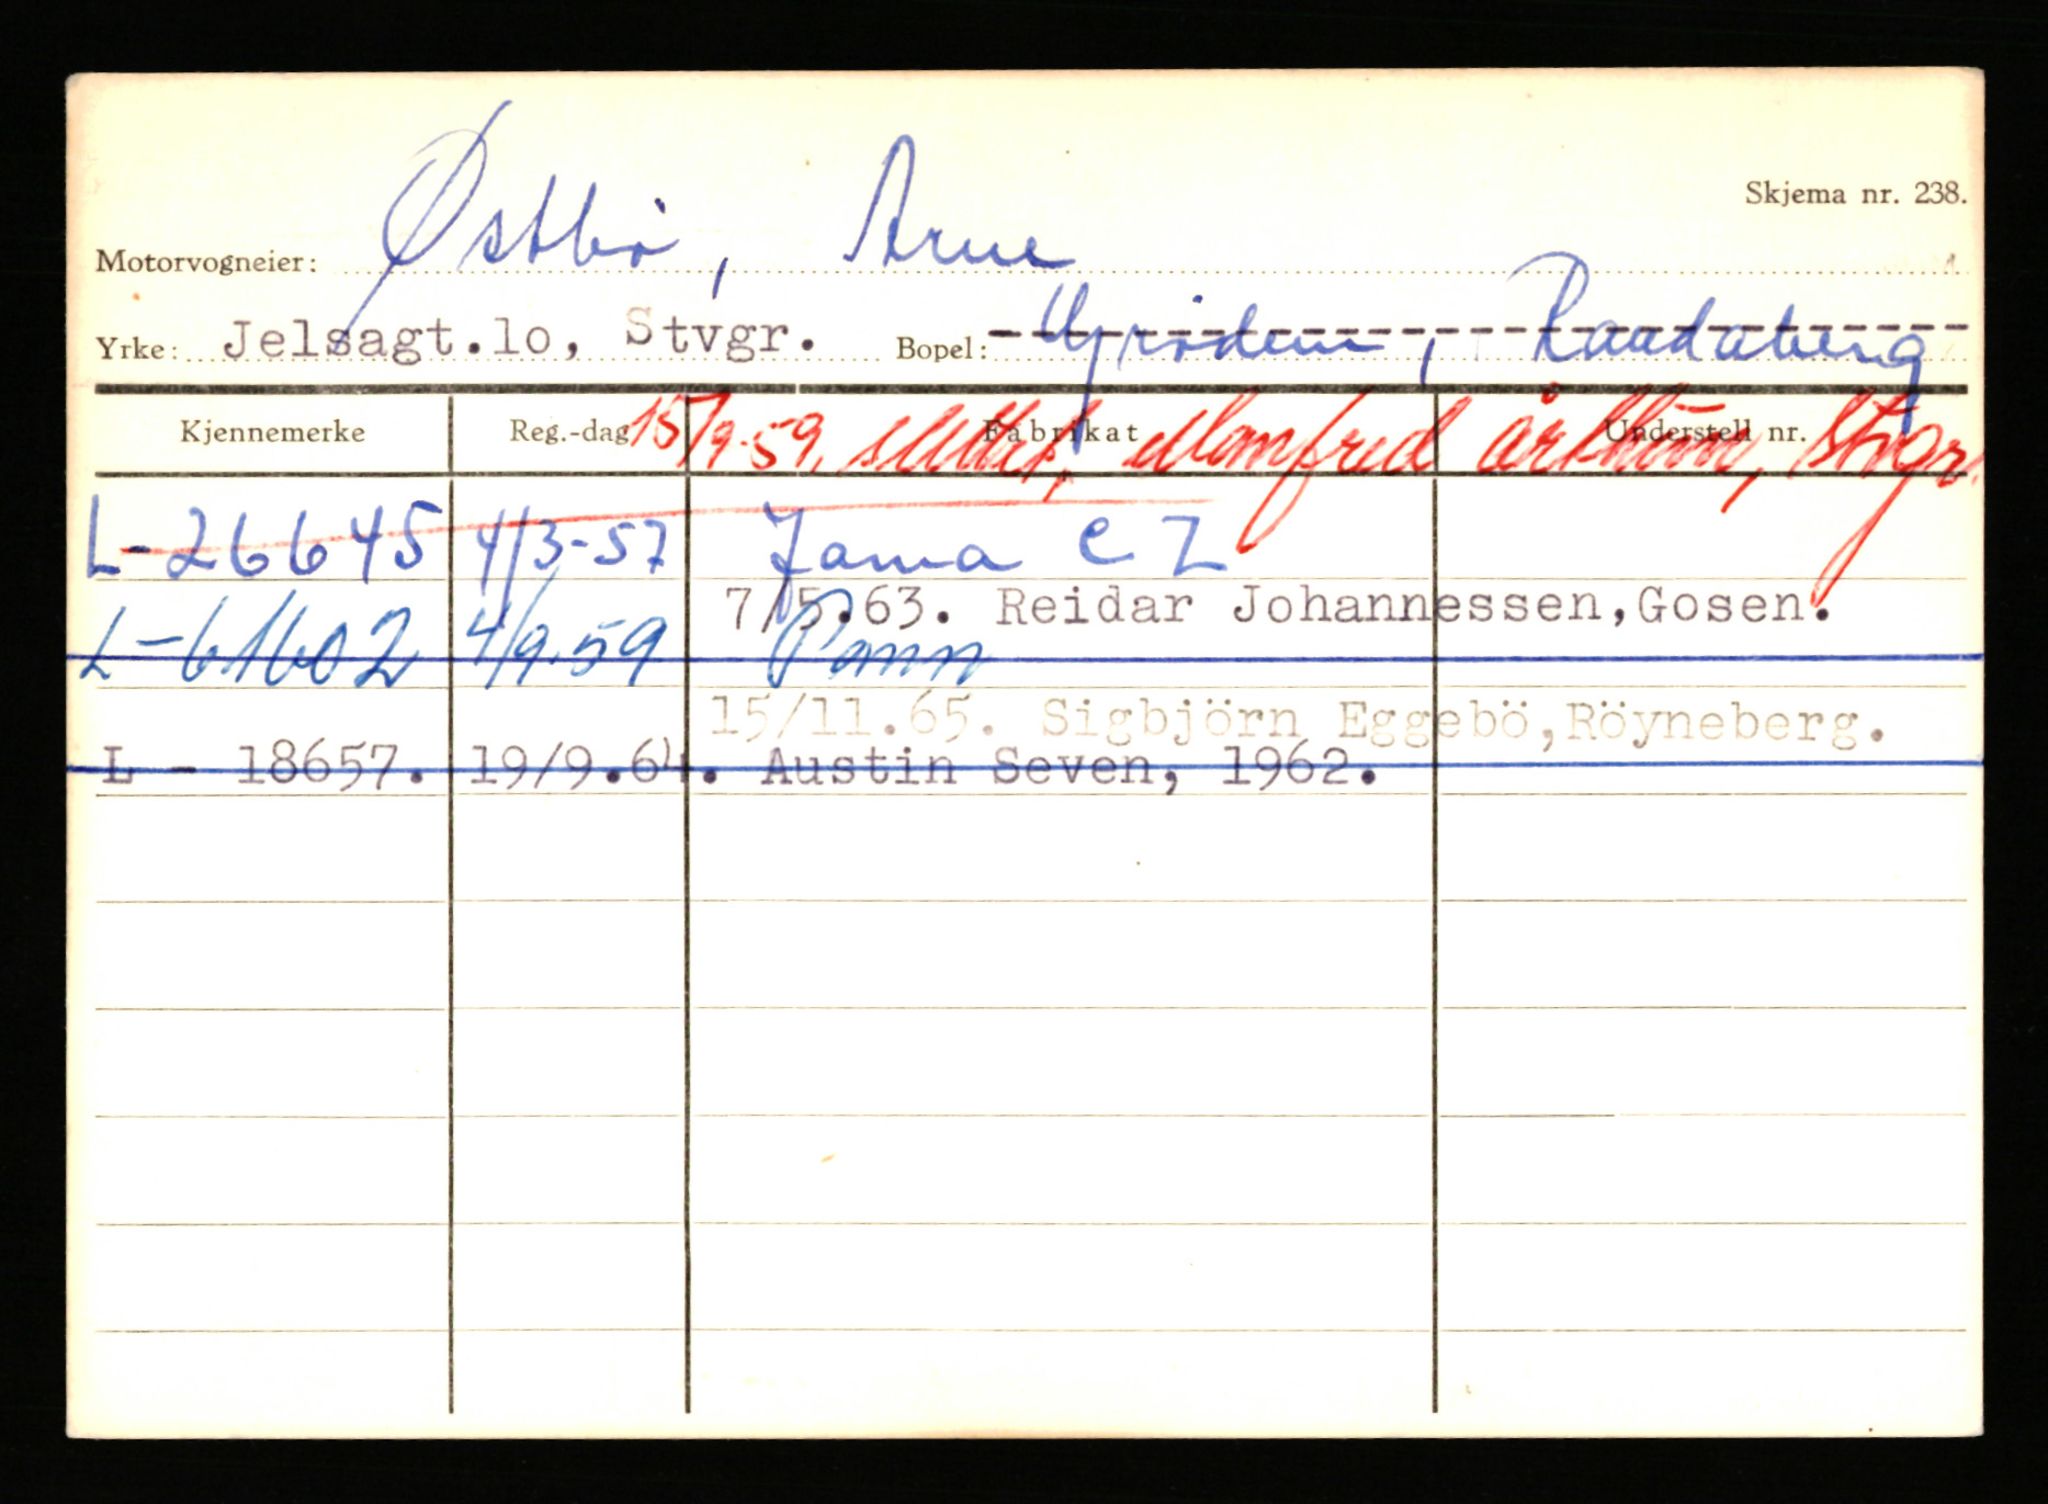 Skjema nr. 238.
Motorvogneier: Østbø, Arne
Yrke: Jelsagt.lo, Stvgr. Bopel: Grødem, Randaberg
Kjennemerke Reg.-dag Fabrikat Understell nr.
15/9-59. slettet, Manfred Stvgr.
L-26645 4/3-57 Jawa CZ
7/5.63. Reidar Johannessen,Gosen.
L-61602 4/9.59
15/11.65. Sigbjörn Eggebö,Röyneberg.
L - 18657. 19/9.64. Austin Seven, 1962.